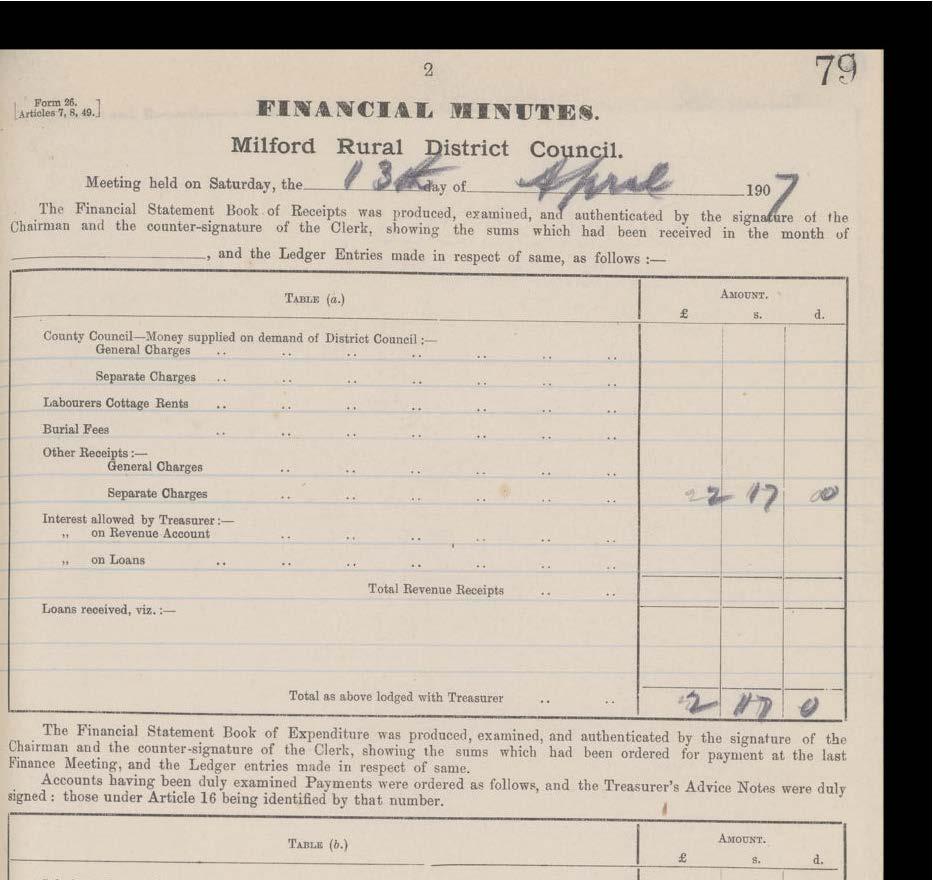 2
79
Form 26.
[Articles 7, 8, 49.]
FINANCIAL MINUTES.
Milford Rural District Council.
Meeting held on Saturday, the 13th day of April 1907
The Financial Statement Book of Receipts was produced, examined, and authenticated by the signature of the
Chairman and the counter-signature of the Clerk, showing the sums which had been received in the month of
, and the Ledger Entries made in respect of same, as follows :—
TABLE (a.)
AMOUNT.
£ s. d.
County Council—Money supplied on demand of District Council :—
General Charges .. .. .. .. .. .. ..
Separate Charges .. .. .. .. .. .. ..
Labourers Cottage Rents .. .. .. .. .. .. ..
Burial Fees .. .. .. .. .. .. ..
Other Receipts :—
General Charges .. .. .. .. .. ..
Separate Charges .. .. .. .. .. .. 2 17 0
Interest allowed by Treasurer :—
„ on Revenue Account .. .. .. .. .. ..
„ on Loans .. .. .. .. .. .. ..
Total Revenue Receipts .. ..
Loans received, viz. :—
Total as above lodged with Treasurer .. .. 2 17 0
The Financial Statement Book of Expenditure was produced, examined, and authenticated by the signature of the
Chairman and the counter-signature of the Clerk, showing the sums which had been ordered for payment at the last
Finance Meeting, and the Ledger entries made in respect of same.
Accounts having been duly examined Payments were ordered as follows, and the Treasurer's Advice Notes were duly
signed : those under Article 16 being identified by that number.
TABLE (b.)
AMOUNT.
£ s. d.